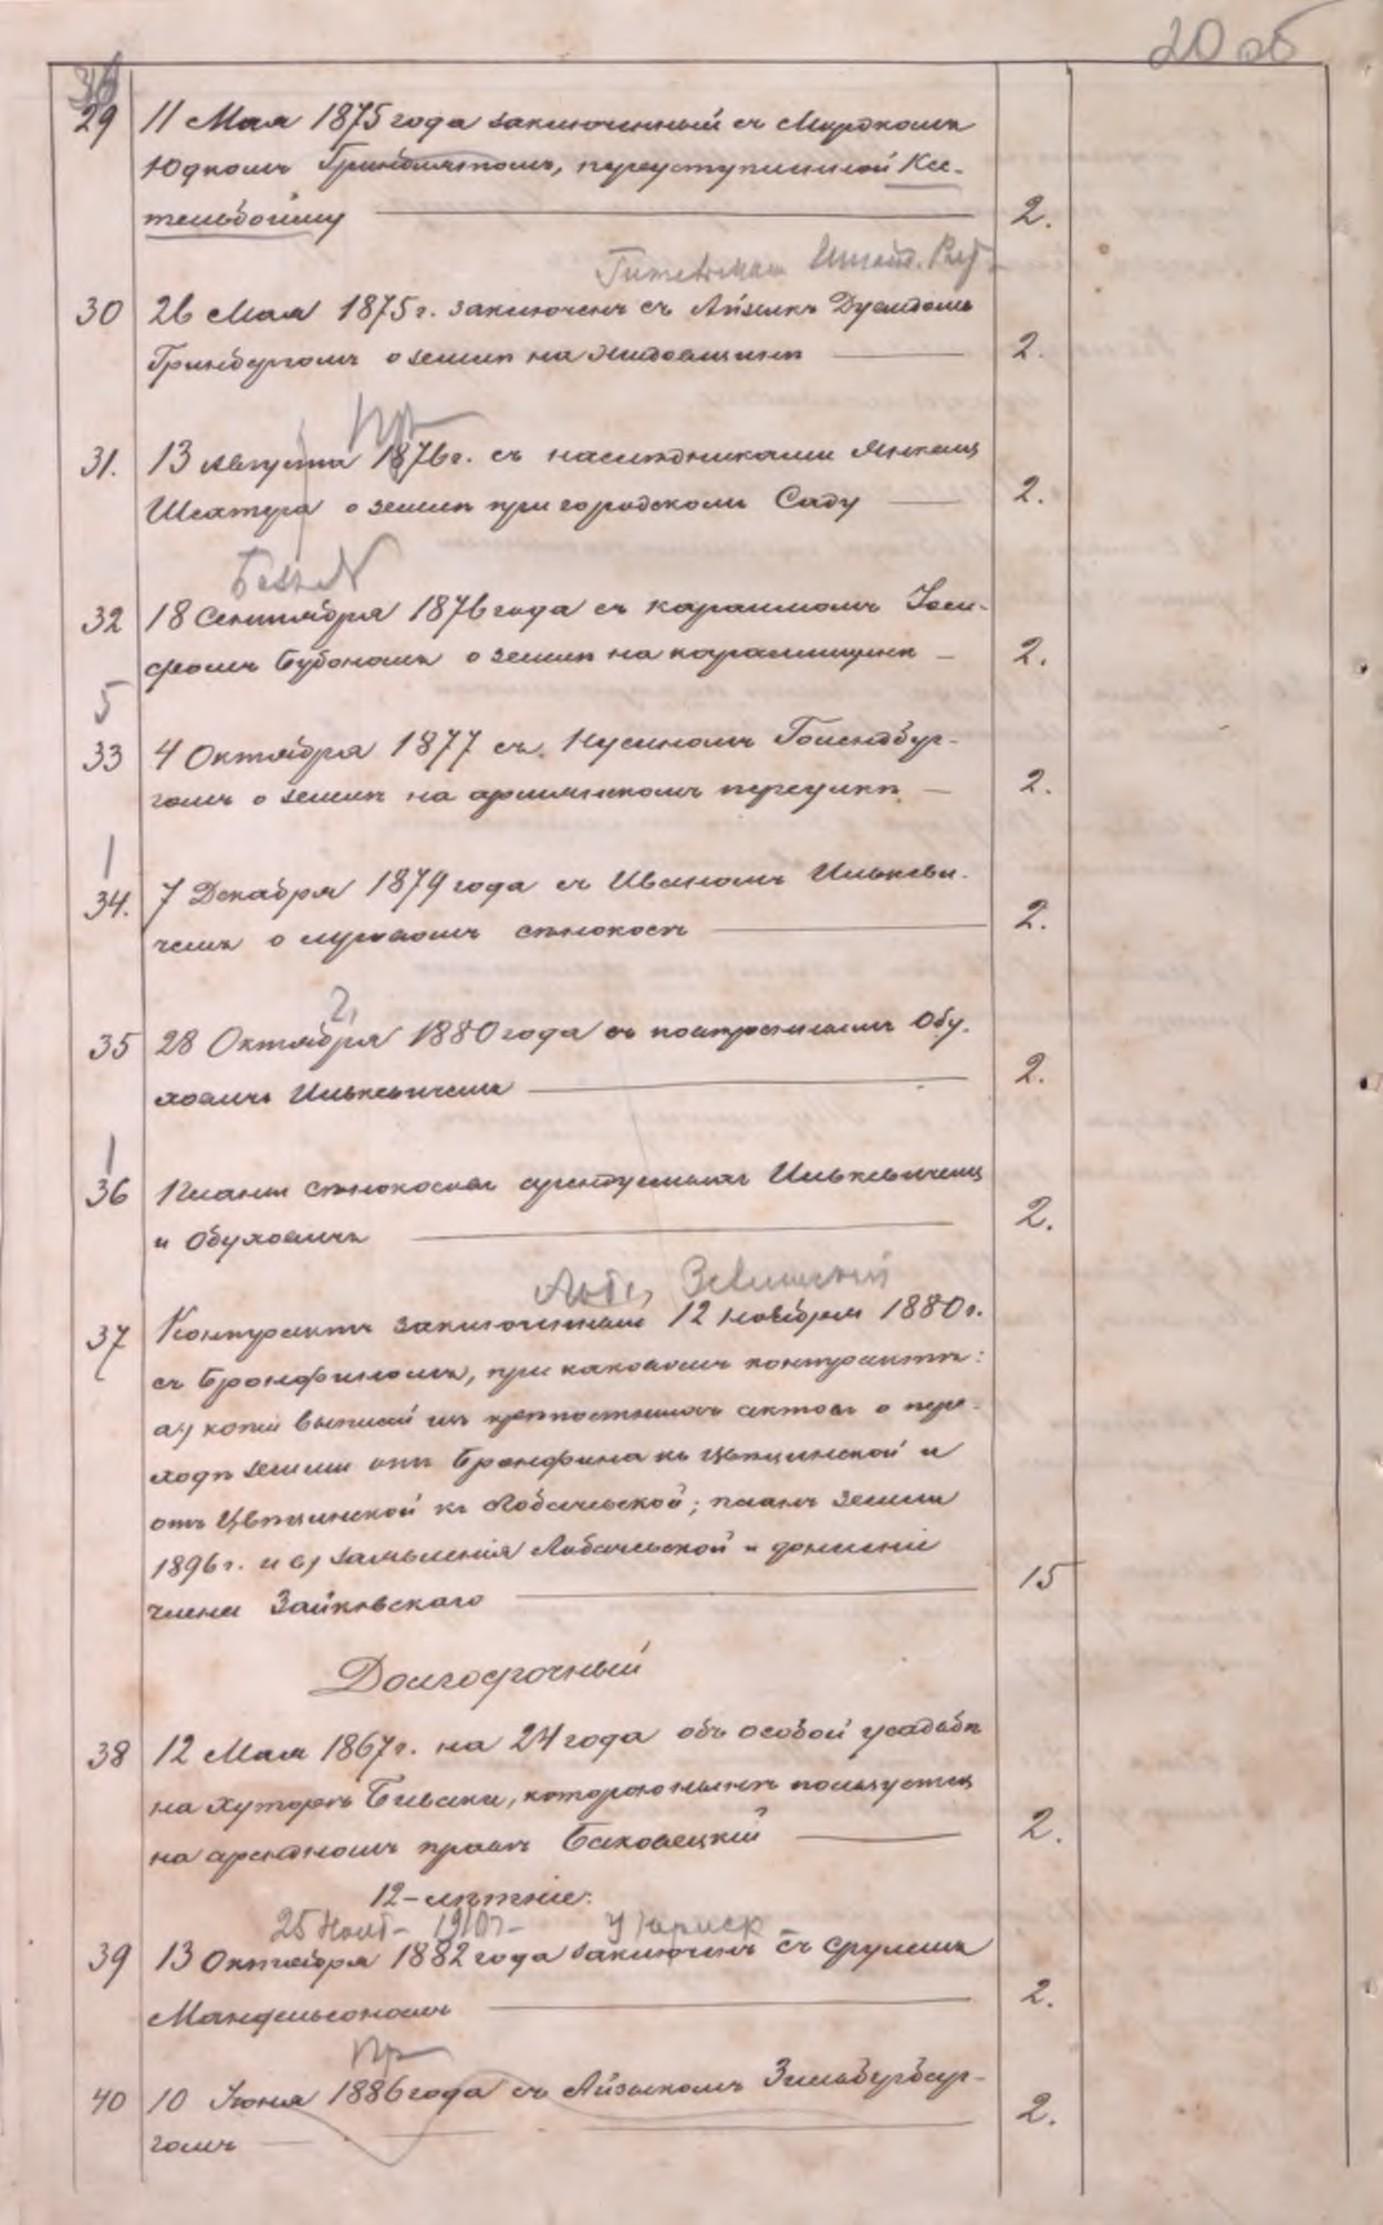 20 об
36
29 11 Мая 1875 года заключенный съ Мордкомъ
Юдкомъ Гринблятомъ, переуступленной Ки-
тельбойму 2.
Гительман
30 26 Мая 1875 г. заключенъ съ Айзикъ Дувидомъ
Гринбергомъ о земле на Жидовщинѣ 2.
Пр
31. 13 Августа 1876 г. съ наслѣдниками Янкеля
Шехтера о землѣ при городскомъ Саду 2.
Безъ N
32 18 Сентября 1876 года съ караимомъ Іоси-
фомъ Бубономъ о землѣ на караимщинѣ 2.
5
33 4 Октября 1877 съ Нусиномъ Гольдбур-
гомъ о землѣ на армянскомъ переулкѣ 2.
1
34. 7 Декабря 1879 года съ Иваномъ Илькеви-
чемъ о луговомъ сѣнокосѣ 2.
2,
35 28 Октября 1880 года съ Обу-
ховичъ Илькевичемъ 2.
1
36 Планъ сѣнокосовъ арендуемыхъ Илькевичемъ
и Обуховичъ 2.
37 Контрактъ заключенный 12 ноября 1880 г.
съ Бронфиномъ, при каковомъ контрактѣ:
а) копіи выписей изъ крѣпостныхъ актовъ о пере-
ходѣ земли отъ Бронфина къ Цвѣцинской и
отъ Цвѣцинской къ Лобачевской; планъ земли
1896 г. и в) заявленія Лобачевской и донесеніе
члена Зайковскаго 15
Долгосрочный
38 12 Мая 1867 г. на 24 года объ особой усадьбѣ
на хуторѣ Биваки, которою нынѣ пользуется
на арендномъ правѣ Баковецкій 2.
12-лѣтніе:
25 Нояб- 1910 г- У Юриск
39 13 Октября 1882 года заключенъ съ Срулемъ
Мандельсономъ 2.
Пр
40 10 Іюня 1886 года съ Айзикомъ Зильбербер-
гомъ 2.